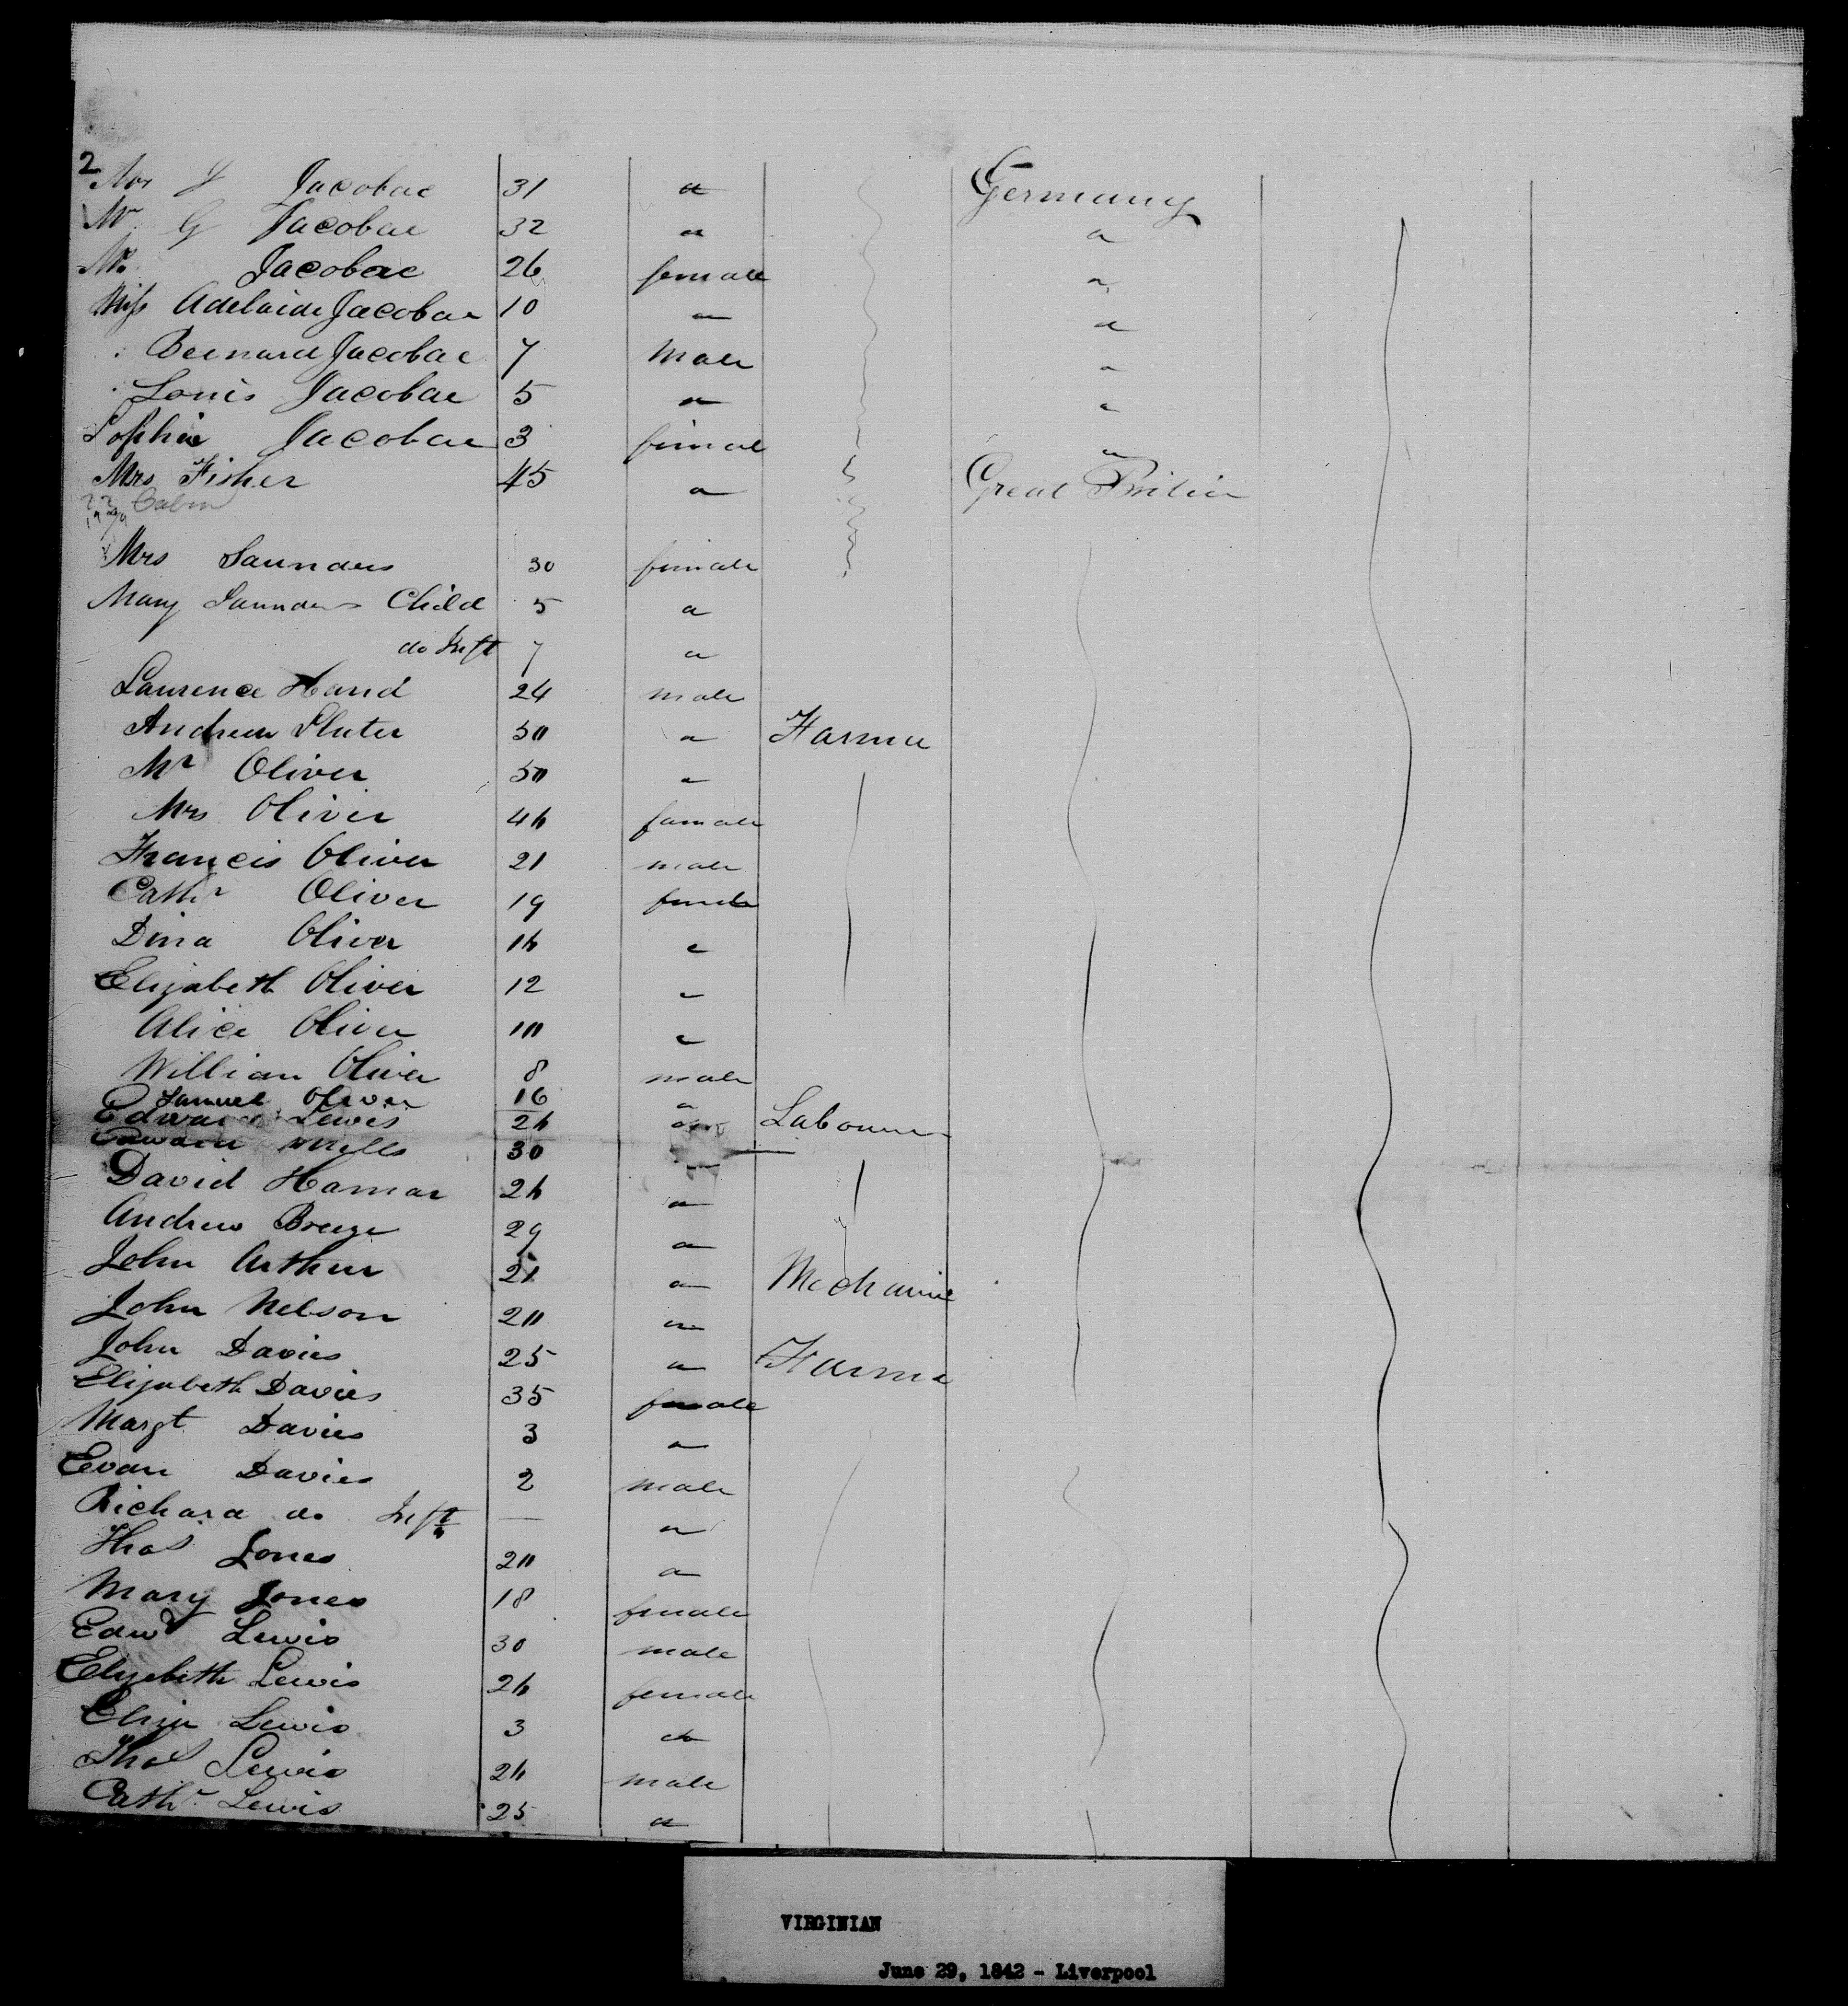 2
Mr J Jacobae 31 " Germany
Mr G Jacobae 32 " "
Mrs Jacobae 26 female "
Miss Adelaide Jacobae 10 " "
Bernard Jacobae 7 Male "
Louis Jacobae 5 " "
Sophia Jacobae 3 female "
Mrs Fisher 45 " Great Britain
Cabin
Mrs Saunders 30 female
Mary Saunders Child 5 "
do Inft 7 "
Laurence Hand 24 male
Andrew Sluter 50 " Farmer
Mr Oliver 50 "
Mrs Oliver 46 female
Francis Oliver 21 male
Cathr Oliver 19 female
Dina Oliver 16 "
Elizabeth Oliver 12 "
Alice Oliver 10 "
William Oliver 8 male
Samuel Oliver 16 "
Edward Lewis 26 " Labourer
Edward Mills 30 "
David Hamar 26 "
Andrew Breeze 29 "
John Arthur 21 " Mechanic
John Nelson 20 "
John Davies 25 " Farmer
Elizabeth Davies 35 female
Margt Davies 3 "
Evan Davies 2 male
Richard do Inft — "
Thos Jones 20 "
Mary Jones 18 female
Edwd Lewis 30 male
Elizabeth Lewis 26 female
Eliza Lewis 3 do
Thos Lewis 26 male
Cathr Lewis 25 "
VIRGINIAN
June 29, 1842 - Liverpool